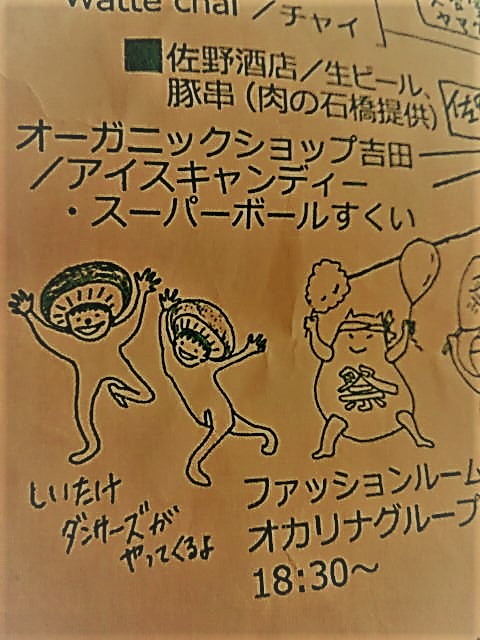 Watte chai／チャイ
■佐野酒店／生ビール、
豚串（肉の石橋提供）
オーガニックショップ吉田
／アイスキャンディー
・スーパーボールすくい
祭
しいたけ
ダンサーズが
やってくるよ
ファッションルーム
オカリナグループ
18:30～